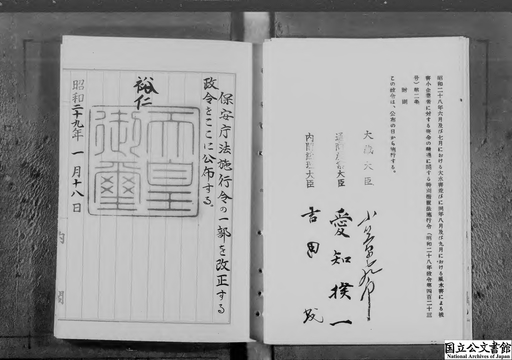 昭和二十八年六月及び七月における大水害並びに同年八月及び九月における風水害による被
害小企業者に対する資金の融通に関する特別措置法施行令(昭和二十八年政令第四百二十三
号)第二条
附則
この政令は、公布の日から施行する。
大蔵大臣
通商産業大臣 愛知揆一
内閣総理大臣 吉田茂
保安庁法施行令の一部を改正する
政令をここに公布する。
裕仁
天皇御璽
昭和二十九年一月十八日
国立公文書館
National Archives of Japan